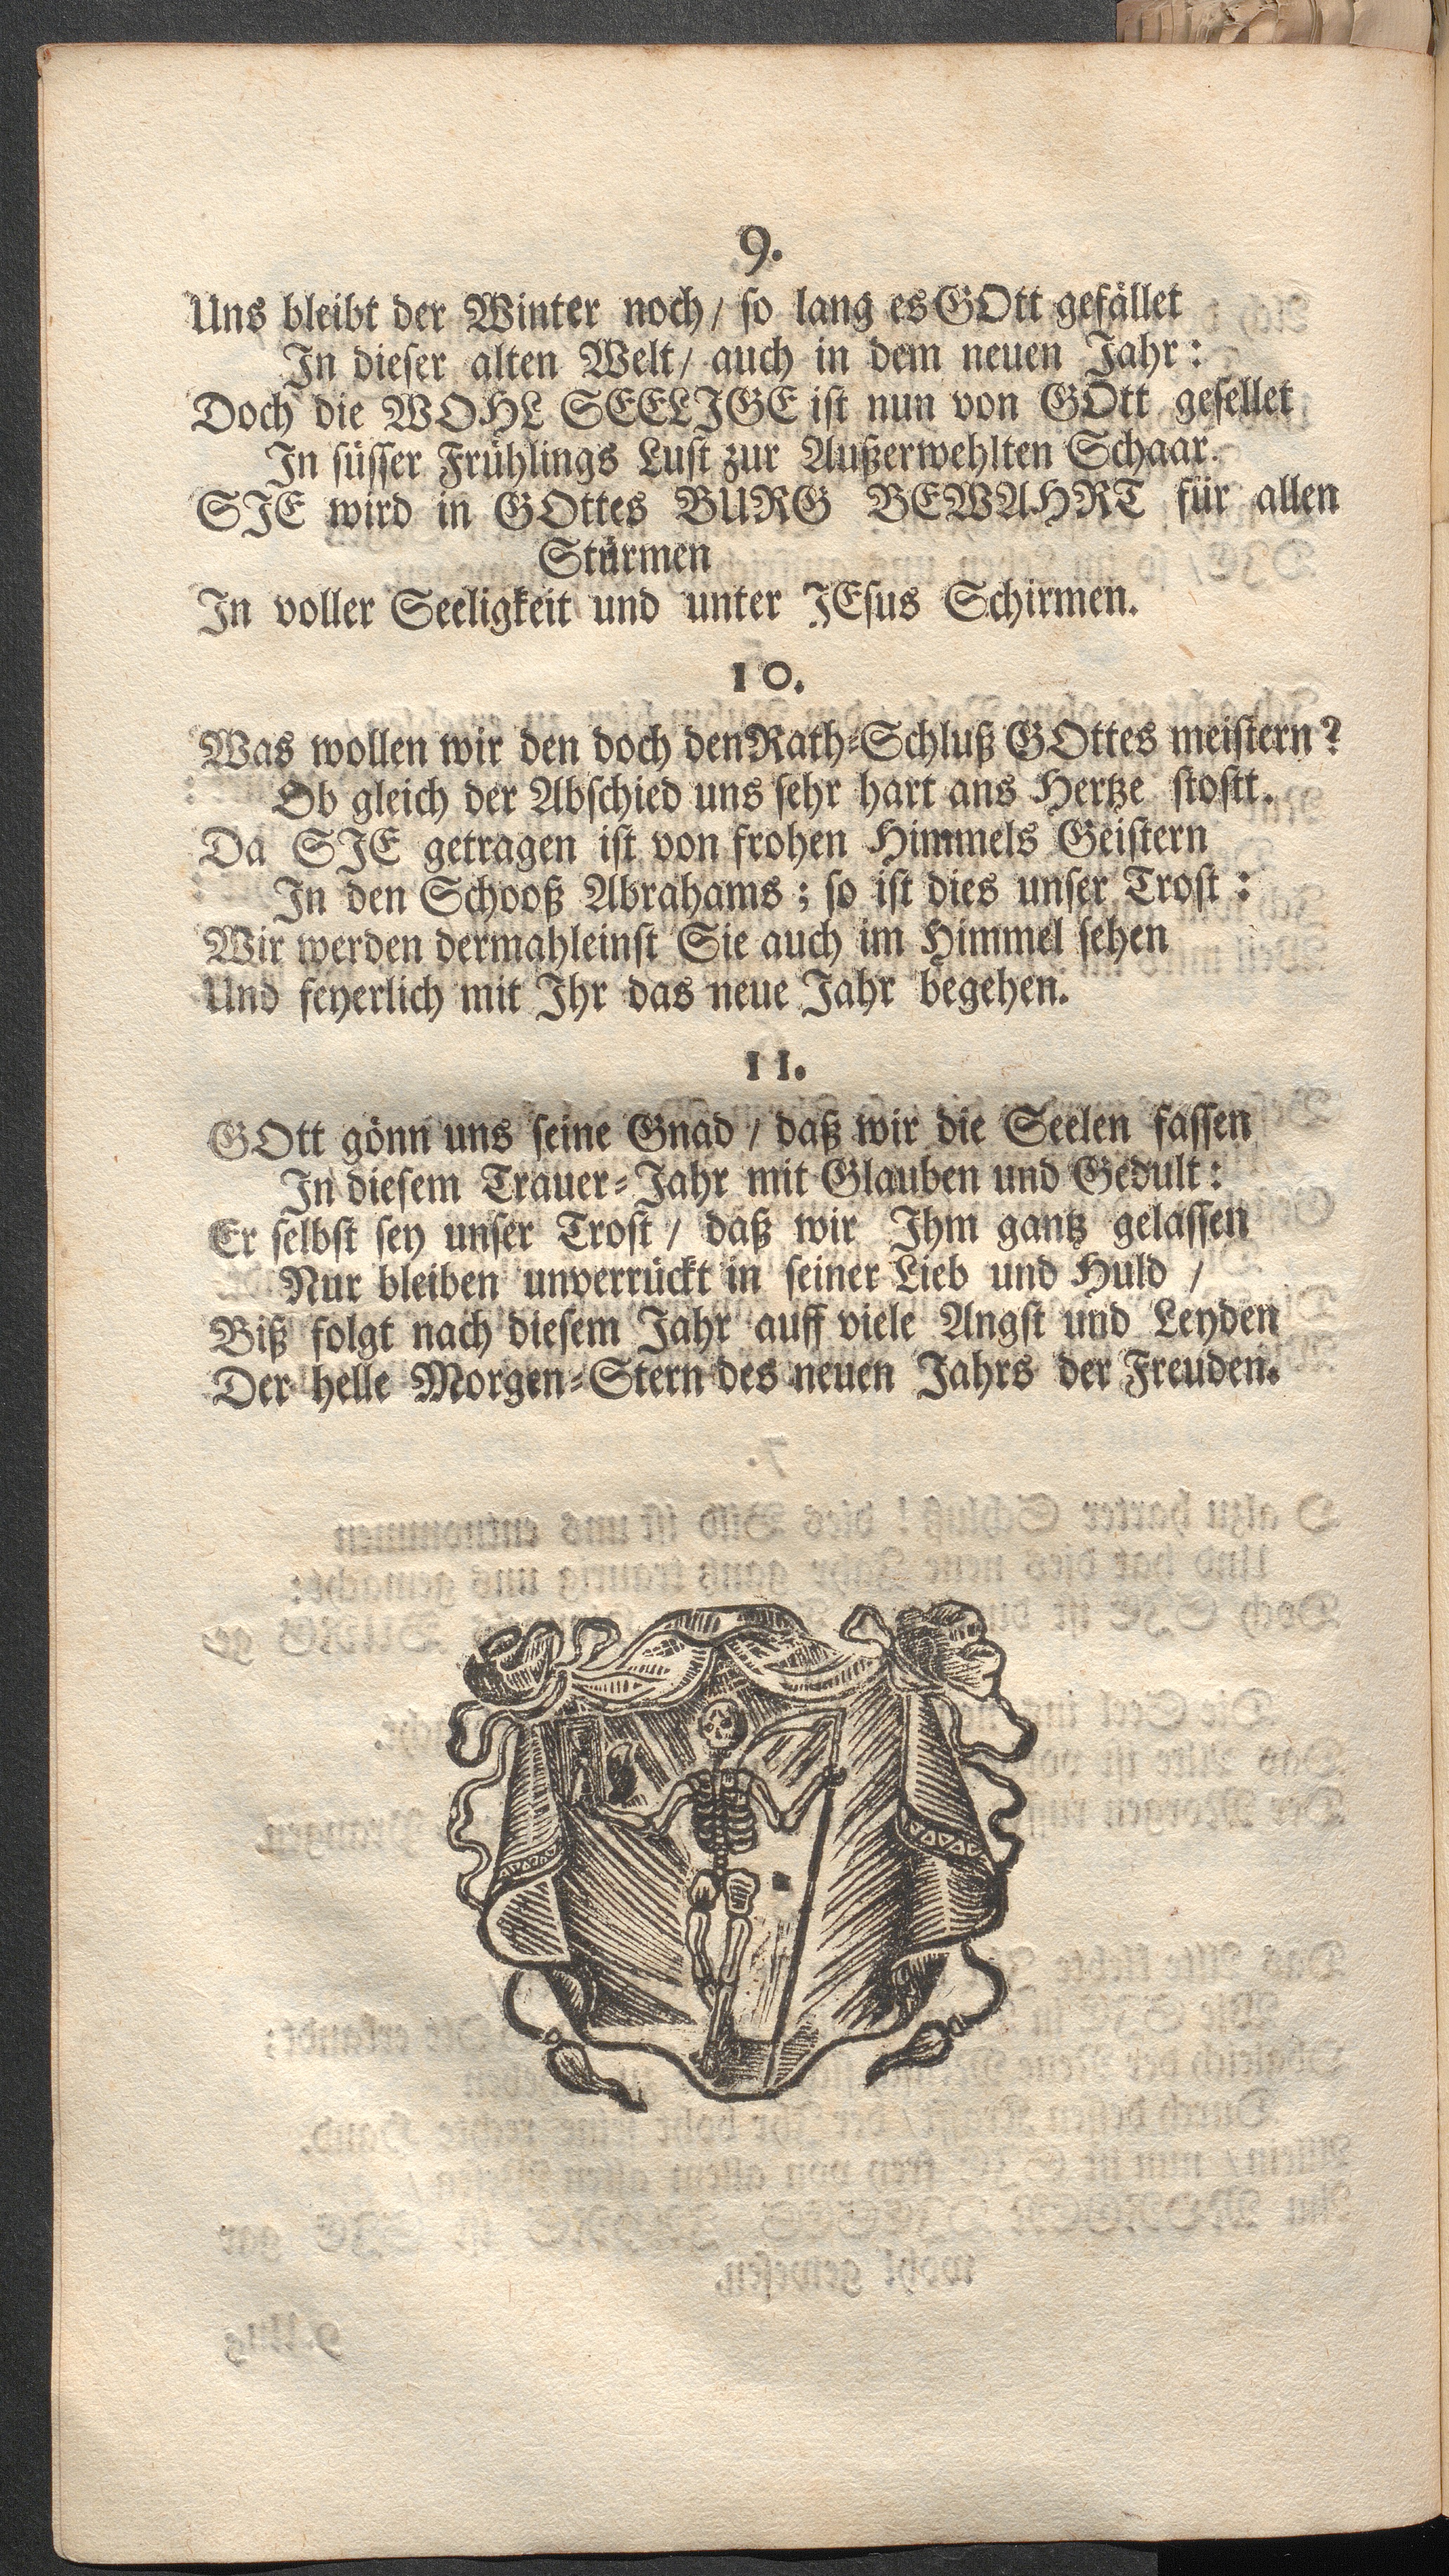 9.
Uns bleibt der Winter noch / so lang es GOtt gefället
In dieser alten Welt / auch in dem neuen Jahr :
Doch die WOHL SEELIGE ist nun von GOtt gesellet
In süsser Frühlings Lust zur Außerwehlten Schaar.
SIE wird in GOttes BURG BEWAHRT für allen
Stürmen
In voller Seeligkeit und unter JEsus Schirmen.
10.
Was wollen wir den doch den Rath-Schluß GOttes meistern ?
Ob gleich der Abschied uns sehr hart ans Hertze stostt.
Da SIE getragen ist von frohen Himmels Geistern
In den Schooß Abrahams ; so ist dies unser Trost :
Wir werden dermahleinst Sie auch im Himmel sehen
Und feyerlich mit Ihr das neue Jahr begehen.
11.
GOtt gönn uns seine Gnad / daß wir die Seelen fassen
In diesem Trauer-Jahr mit Glauben und Gedult :
Er selbst sey unser Trost / daß wir Ihm gantz gelassen
Nur bleiben unverrückt in seiner Lieb und Huld /
Biß folgt nach diesem Jahr auff viele Angst und Leyden
Der helle Morgen-Stern des neuen Jahrs der Freuden.